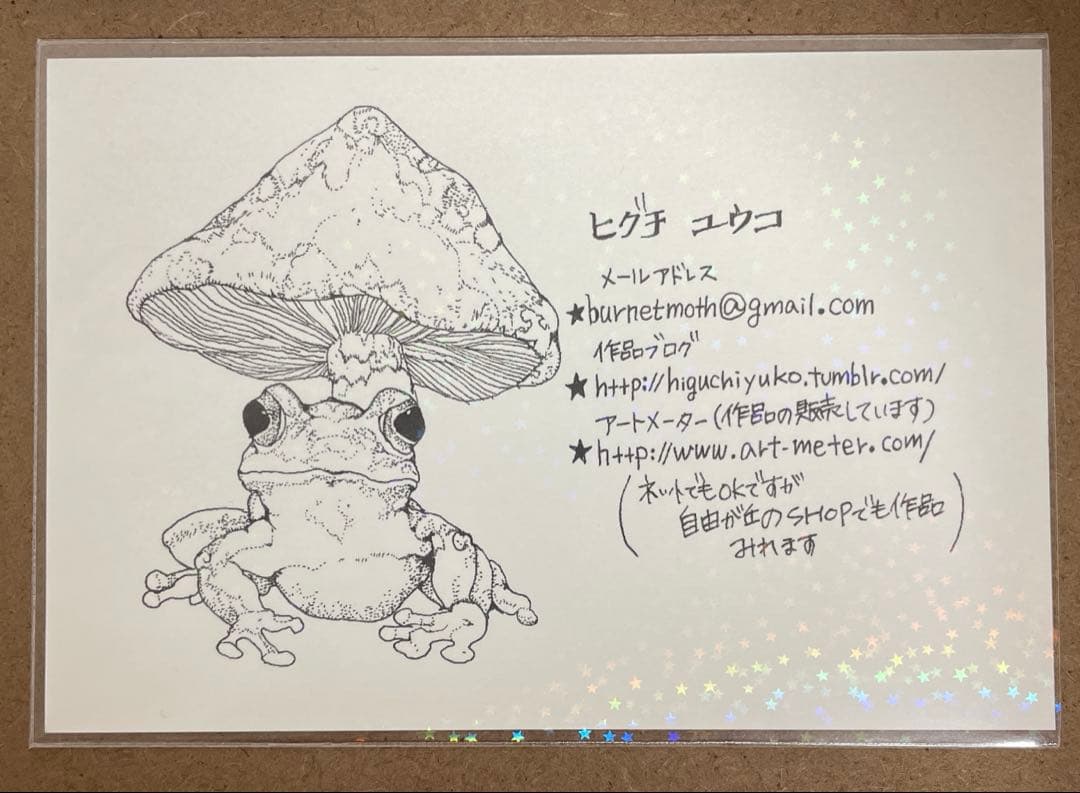 ヒグチ ユウコ
メールアドレス
★burnetmoth@gmail.com
作品ブログ
★http://higuchiyuko.tumblr.com/
アートメーター(作品の販売しています)
★http://www.art-meter.com/
(ネットでもOKですが
自由が丘のSHOPでも作品
みれます)